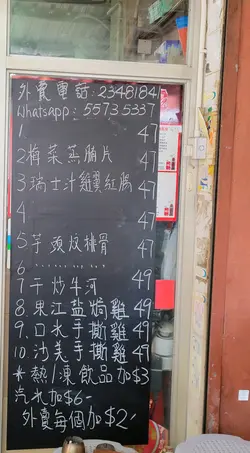 外賣電話:2348184
Whatsapp:55735337
1. 47
2梅菜蒸腩片 47
3瑞士汁雞翼紅腸 47
4 47
5芋頭炆排骨 47
6.
7干炒牛河 49
8.果江盐焗雞 49
9.口水手撕雞 49
10.沙姜手撕雞 49
*熱/凍飲品加$3
汽水加$6-
外賣每個加$2-